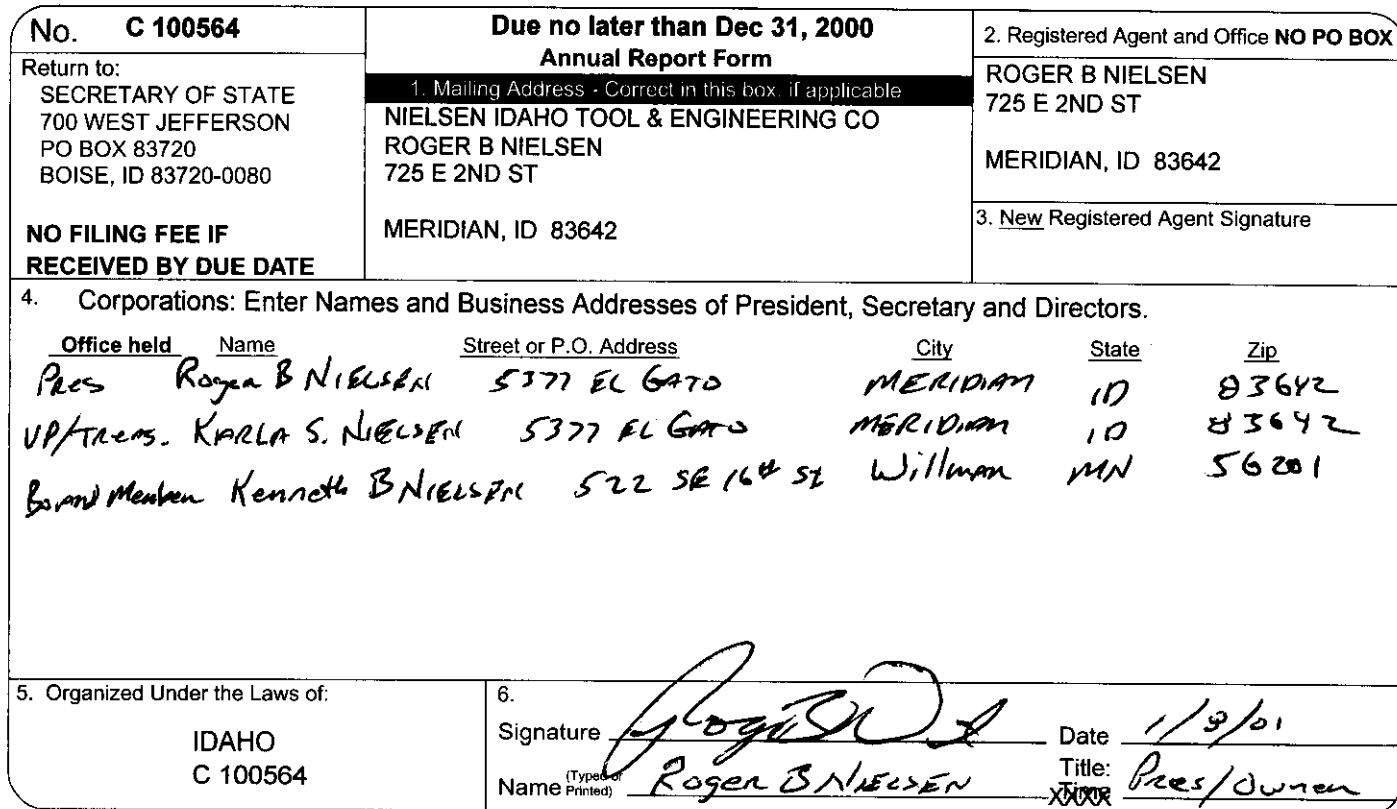 No. C 100564
Return to:
SECRETARY OF STATE
700 WEST JEFFERSON
PO BOX 83720
BOISE, ID 83720-0080
NO FILING FEE IF
RECEIVED BY DUE DATE
Due no later than Dec 31, 2000
Annual Report Form
1. Mailing Address - Correct in this box, if applicable
NIELSEN IDAHO TOOL & ENGINEERING CO
ROGER B NIELSEN
725 E 2ND ST
MERIDIAN, ID 83642
2. Registered Agent and Office NO PO BOX
ROGER B NIELSEN
725 E 2ND ST
MERIDIAN, ID 83642
3. New Registered Agent Signature
4. Corporations: Enter Names and Business Addresses of President, Secretary and Directors.
Office held Name Street or P.O. Address City State Zip
Pres Roger B NIELSEN 5377 EL GATO MERIDIAN ID 83642
VP/Treas. KARLA S. NIELSEN 5377 EL GATO MERIDIAN ID 83642
Board Member Kenneth B NIELSEN 522 SE 16th St Willmar MN 56201
5. Organized Under the Laws of:
IDAHO
C 100564
6.
Signature Date 1/3/01
Name (Typed or Printed) Roger B NIELSEN Title: Pres/Owner